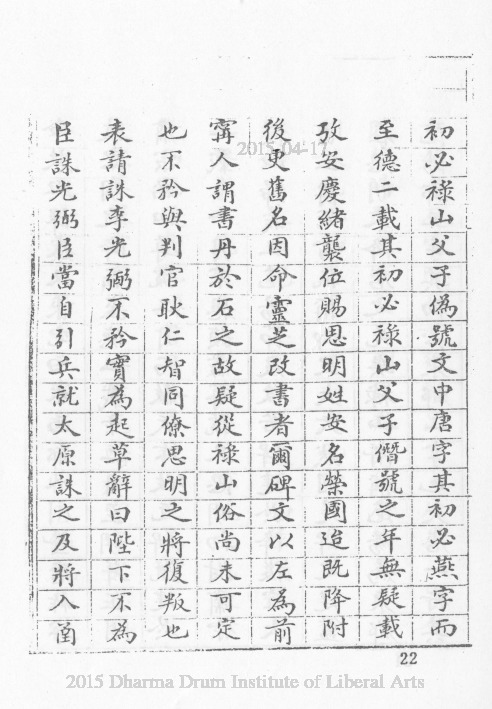 初必祿山父子偽號文中唐字其初必燕字而
至德二載其初必祿山父子僭號之年無疑載
攷安慶緒襲位賜思明姓安名榮國迨既降附
後更舊名因命靈芝改書者爾碑文以左為前
甯人謂書丹於石之故疑從祿山俗尚未可定
也不矜與判官耿仁智同僚思明之將復叛也
表請誅李光弼不矜實為起草辭曰陛下不為
臣誅光弼臣當自引兵就太原誅之及將入函
22
2015-04-17
2015 Dharma Drum Institute of Liberal Arts